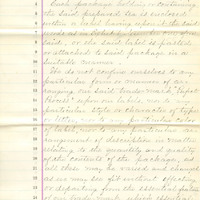 Each package holding or containing
the said prepared Tea is enclosed
within a label having upon it the said
words as in Exhibit
said, or the said label is pasted
or attached to said package in a
suitable manner.
We do not confine ourselves to any
particular form or manner of arr-
anging our said trade-mark
upon our labels, nor to any
particular style or character of type
or letter, nor to any particular color
of label, nor to any particular arr-
angement of descriptive matter
relating to the quantity and quality
of the contents of the package, as
all these may be varied and changed
as we may see fit without affecting
or departing from the essential features
of our trade-mark, which essential